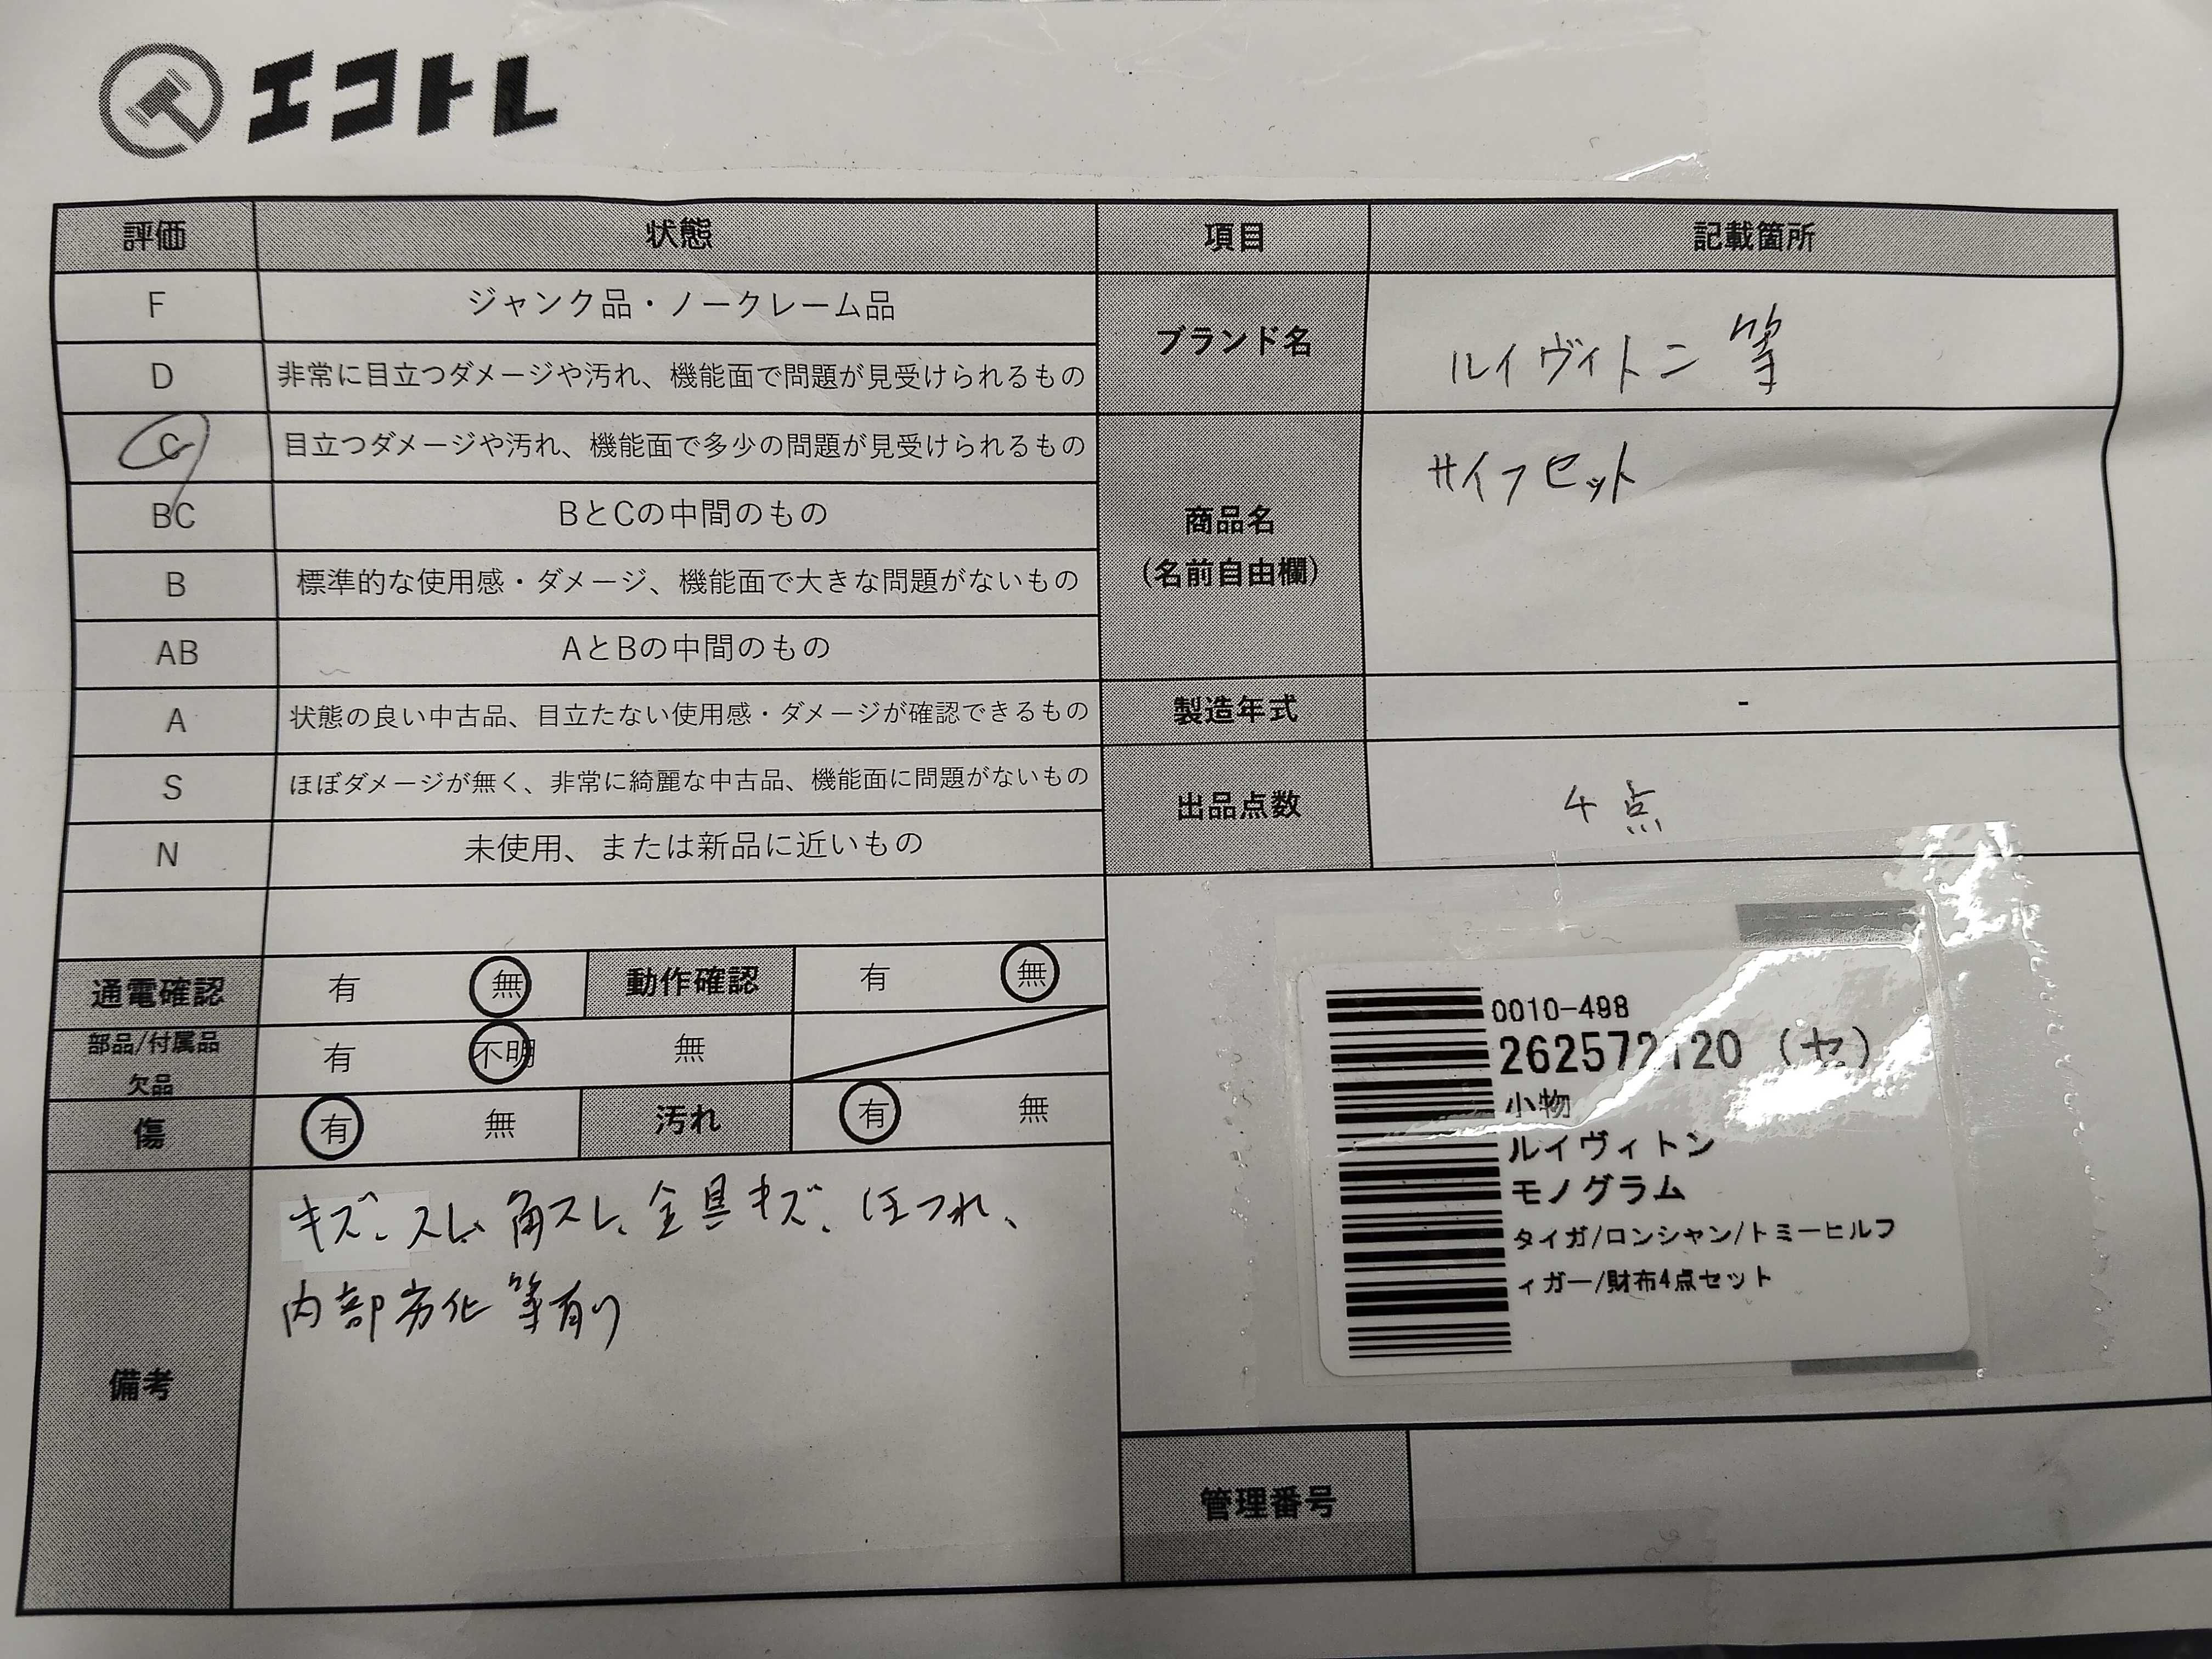 エコトレ
評価 状態 項目 記載箇所
F ジャンク品・ノークレーム品
D 非常に目立つダメージや汚れ、機能面で問題が見受けられるもの
ブランド名 ルイヴィトン 等
C 目立つダメージや汚れ、機能面で多少の問題が見受けられるもの
BC BとCの中間のもの
B 標準的な使用感・ダメージ、機能面で大きな問題がないもの
AB AとBの中間のもの
商品名
(名前自由欄)
サイフセット
A 状態の良い中古品、目立たない使用感・ダメージが確認できるもの
製造年式 -
S ほぼダメージが無く、非常に綺麗な中古品、機能面に問題がないもの
出品点数 4点
N 未使用、または新品に近いもの
通電確認 有 無 動作確認 有 無
部品/付属品
欠品
有 不明 無
傷 有 無 汚れ 有 無
備考
キズ、スレ、角スレ、金具キズ、ほつれ、
内部劣化等有り
0010-498
262572120 (セ)
小物
ルイヴィトン
モノグラム
タイガ/ロンシャン/トミーヒルフ
ィガー/財布4点セット
管理番号